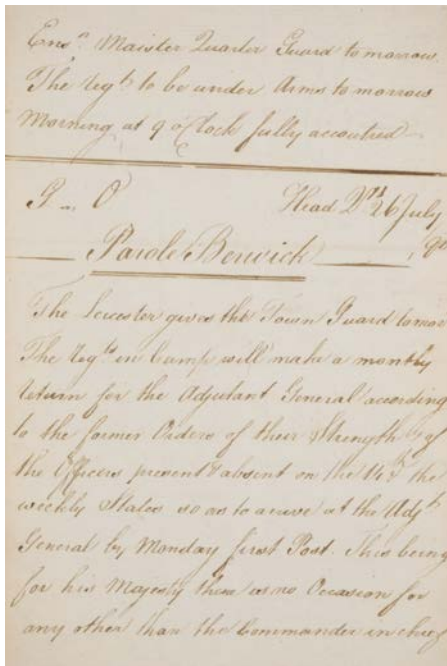 Ensn. Maister Quarter Guard tomorrow.
The Regt. to be under Arms tomorrow
Morning at 9 o'Clock fully accoutred
G.. O Head Qrs 26 July
Parole Berwick
The Leicester gives the Town Guard tomor
The Regts. in Camp will make a monthly
return for the Adjutant General according
to the former Orders of their Strength & of
the Officers present & absent on the the
weekly States so as to arrive at the Adjt.
General by Monday first Post. This being
for his Majesty there is no Occasion for
any other than the Commander in chief